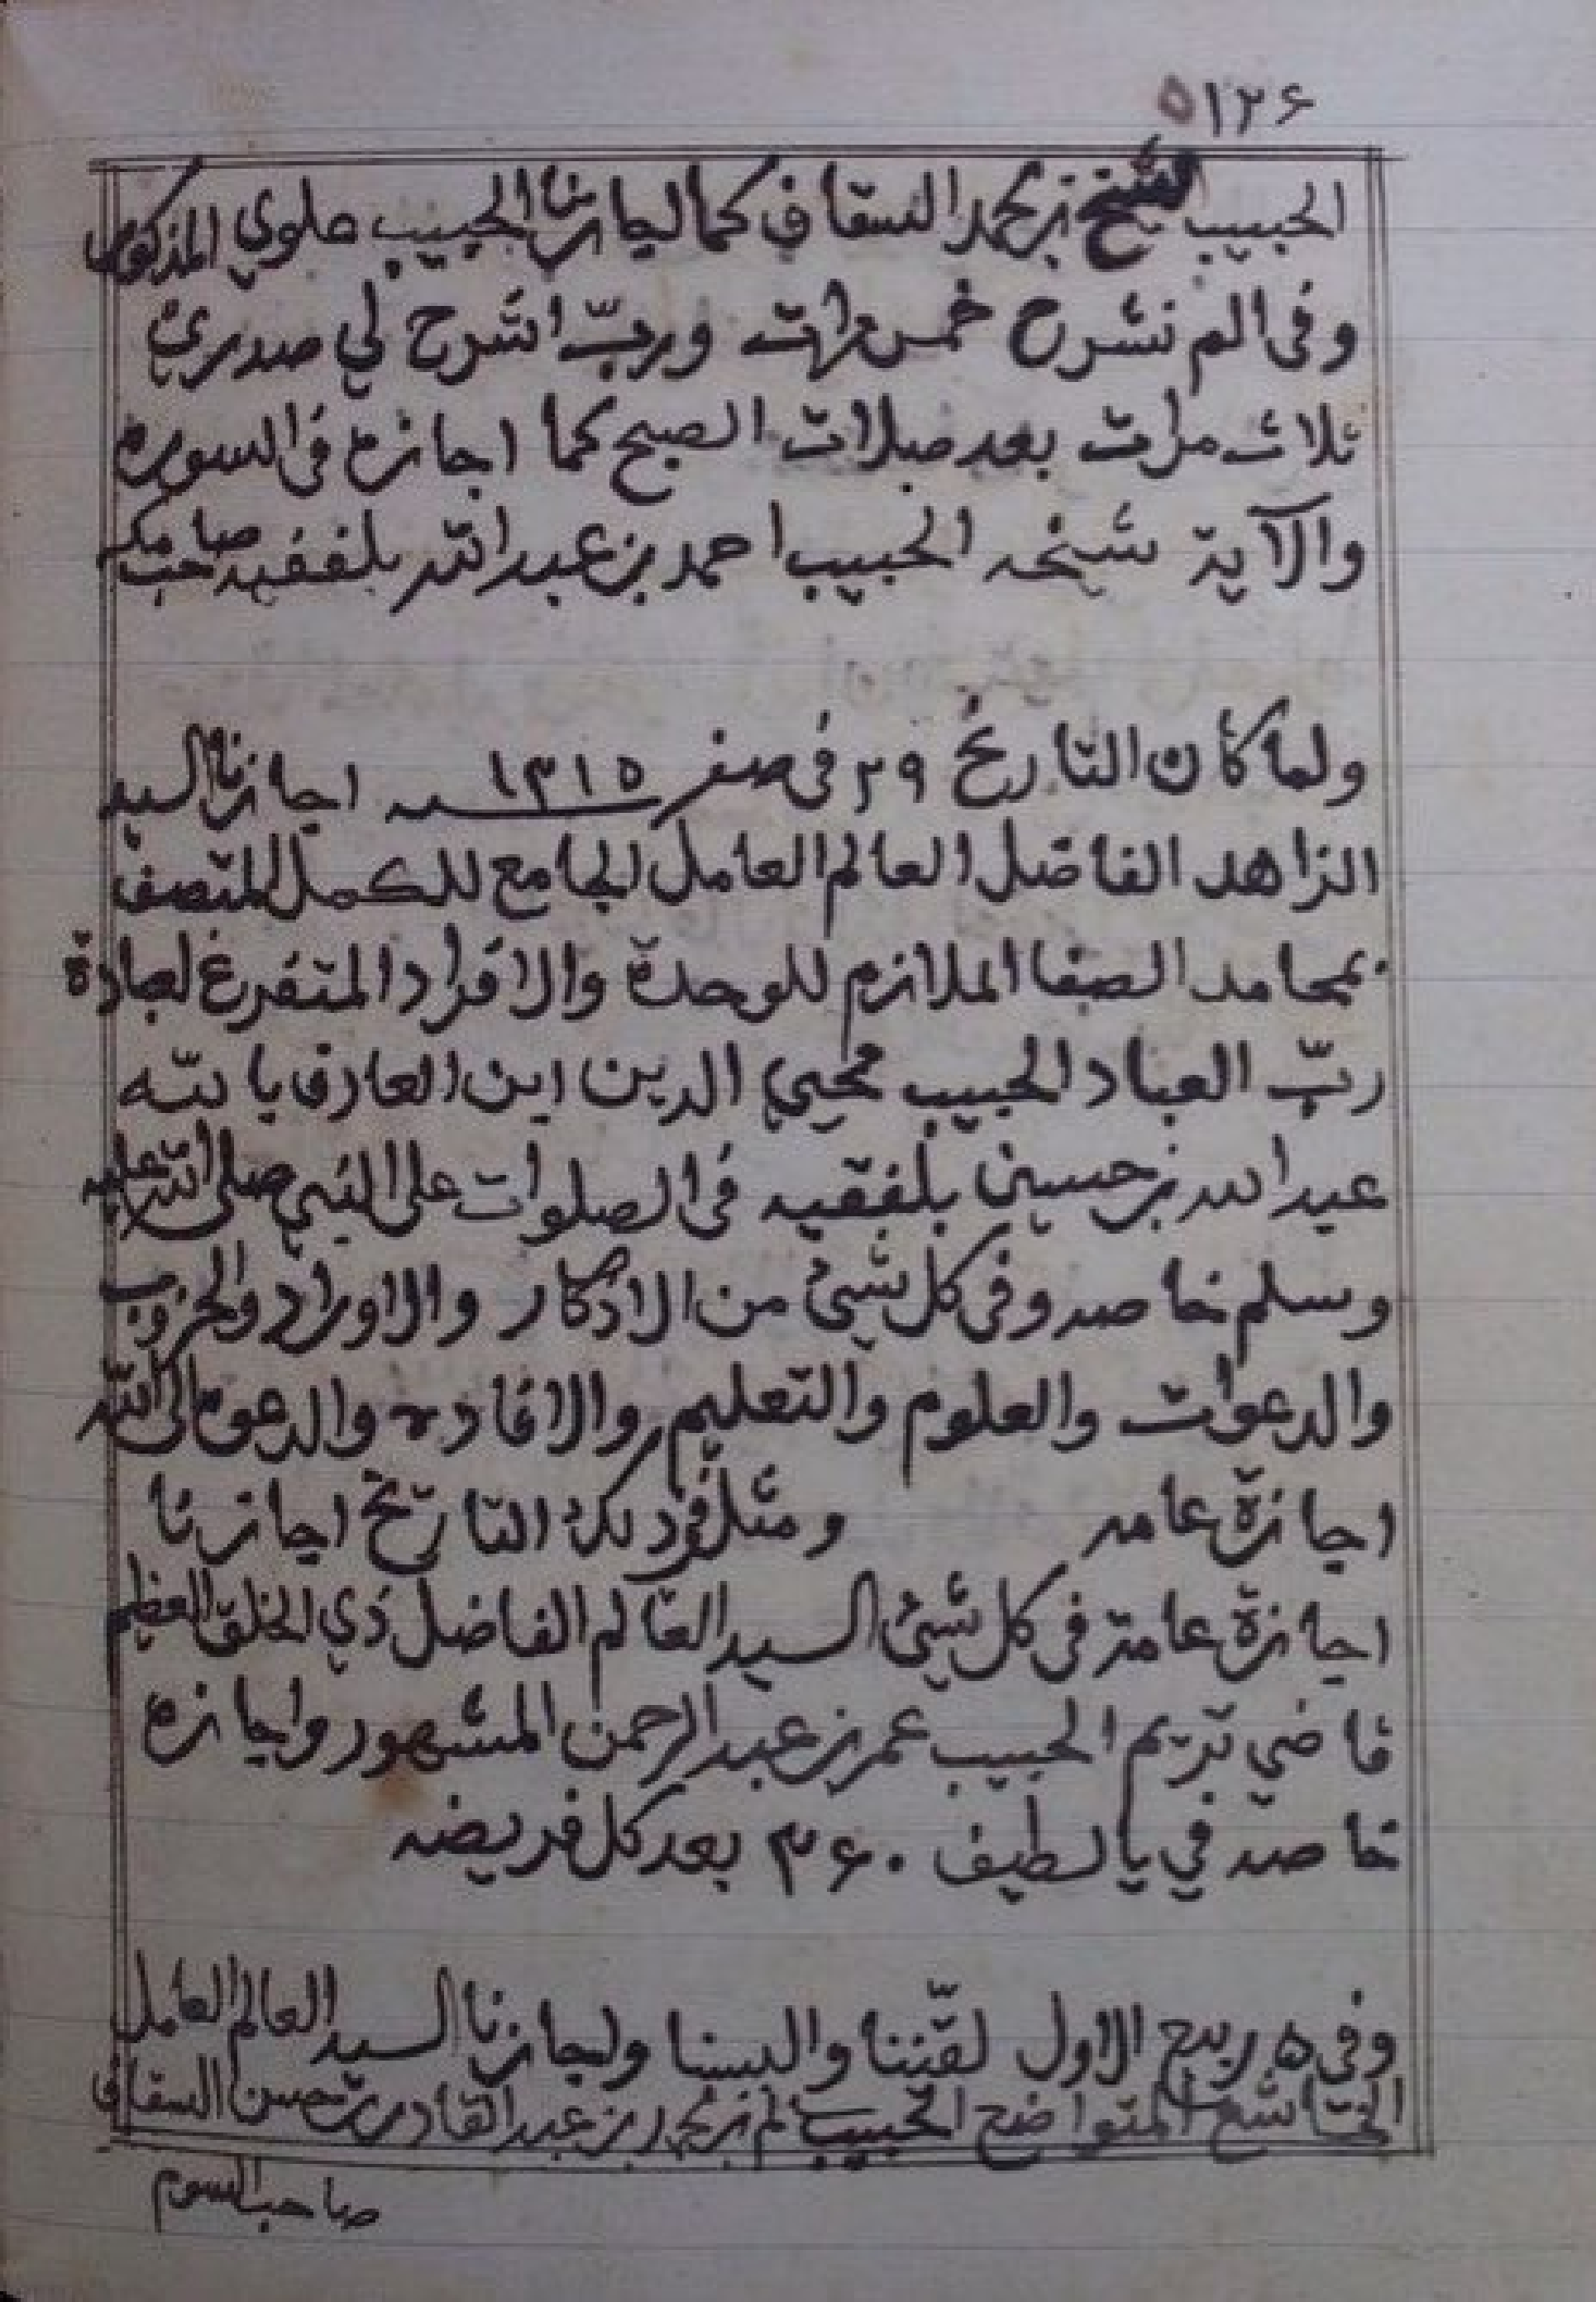 ١٢٤٥
الحبيب الشيخ بن محمد السقاف كما اجازنا الحبيب علوي المذكور
وفى الم نشرح خمس مرات وربّ اشرح لي صدري
ثلاث مرات بعد صلات الصبح كما اجازه فى السوره
والآية شيخه الحبيب احمد بن عبد الله بلفقيه صاحب مكه
ولما كان التاريخ ٢٩ فى صفر سنه ١٣١٥ اجازنا السيد
الزاهد الفاضل العالم العامل الجامع للكمل المتصف
بمحامد الصفا الملازم للوحدة والافراد المتفرغ لعبادة
ربّ العباد الحبيب محيي الدين ابن العارف بالله
عبد الله بن حسين بلفقيه فى الصلوات على النبي صلى الله عليه
وسلم خاصه وفى كل شيئ من الاذكار والاوراد والحزوب
والدعوات والعلوم والتعليم والافاده والدعوه الى الله
اجازة عامه ومثل فى ذلك التاريخ اجازنا
اجازة عامة فى كل شيئ السيد العالم الفاضل ذي الخلق العظيم
قاضي تريم الحبيب عمر بن عبد الرحمن المشهور واجازه
خاصه في يالطيف ٣٤٠ بعد كل فريضه
وفى ٥ ربيع الاول لقّننا والبسنا واجازنا السيد العالم العامل
الخاشع المتواضع الحبيب بن محمد بن عبد القادر بن حسن السقاف
صاحب السوم